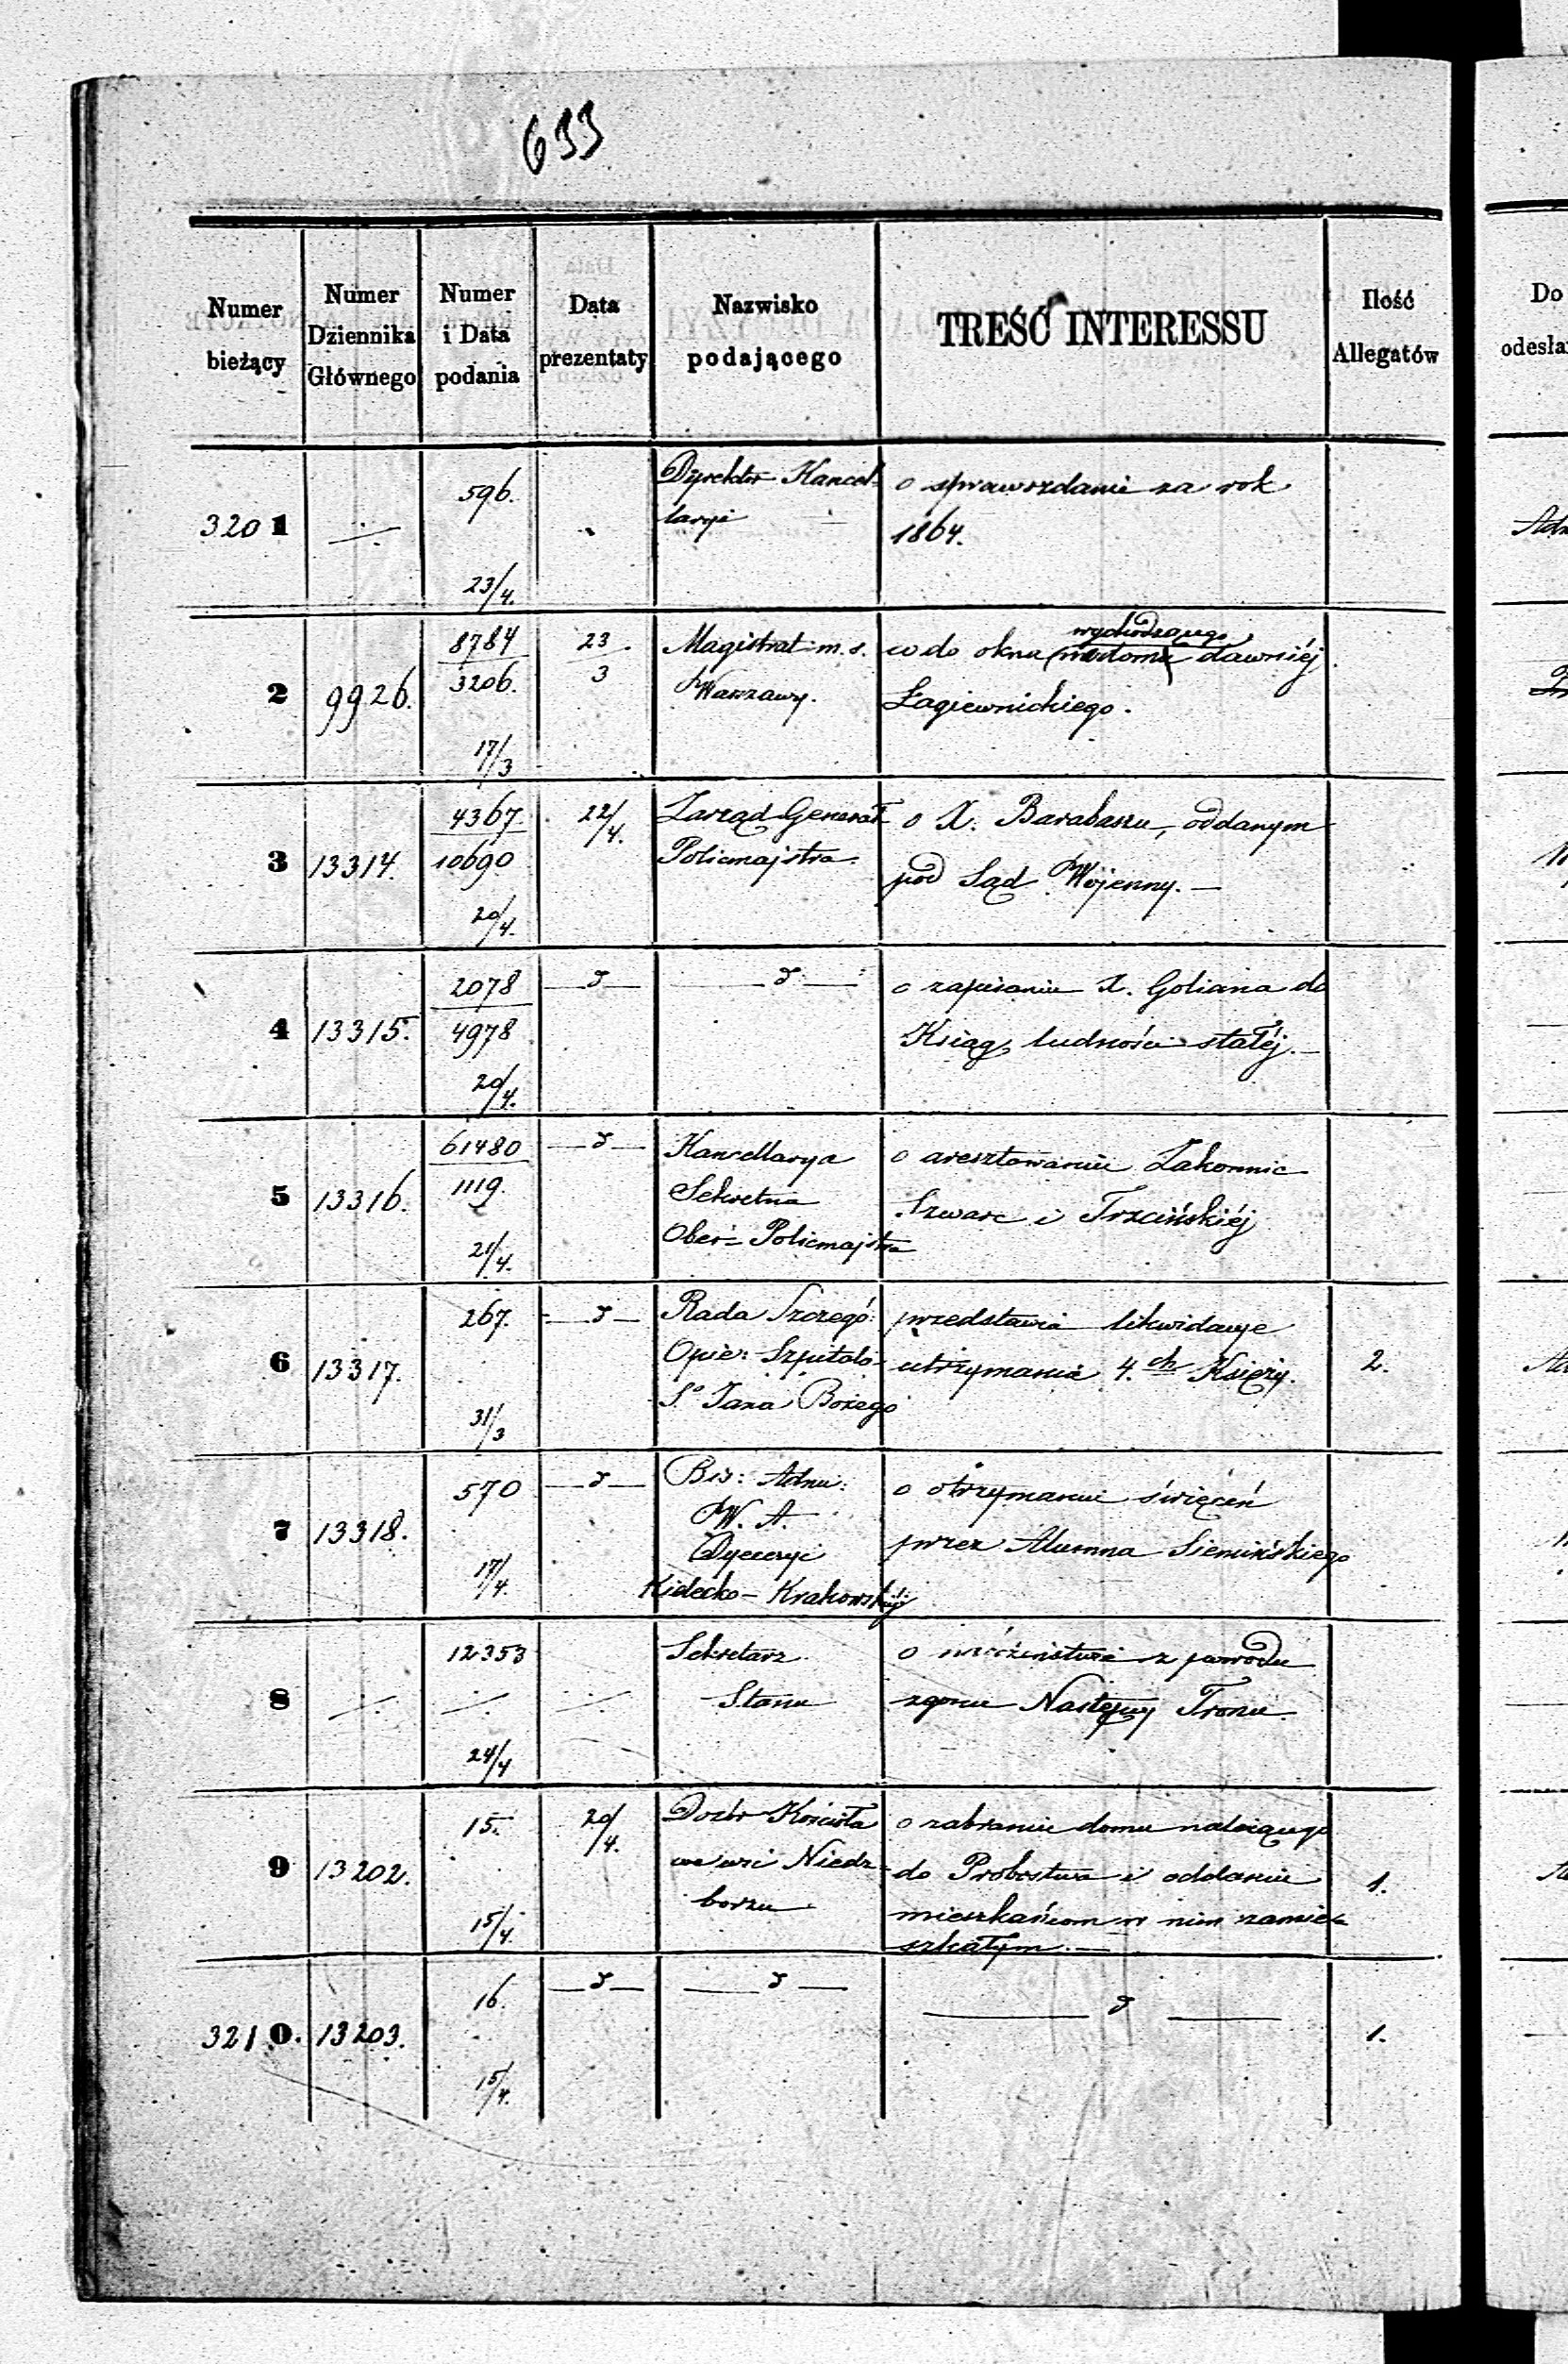 633
Numer bieżący
Numer Dziennika Głównego
Numer i Data podania
Data prezentaty
Nazwisko podającego
TREŚĆ INTERESSU
Ilość Allegatów
Do
odesła
3201
596.
23/4.
Dyrektor Kancel-
laryi
o sprawozdanie za rok
1864.
2
9926.
8784
3206.
17/3
23
3
Magistrat m. s.
Warszawy.
wychodzącego
w do okna dawniéj
Łagiewnickiego.
3
13314.
4367
10690
20/4.
22/4.
Zarząd Generał
Policmajstra.
o X. Barabaszu, oddanym
pod Sąd Wojenny. —
4
13315.
2078
4978
20/4.
— d —
— d —
o zapisanie X. Goliana do
Ksiąg ludności stałéj. —
5
13316.
61480
1119.
21/4.
— d —
Kancellarya
Sekretna
Ober-Policmajstra
o aresztowaniu Zakonnic
Szwarc i Trzcińskiéj
6
13317.
267.
31/3
— d —
Rada Szczegó:
Opie: Szpitala
Sº Jana Bożego
przedstawia likwidacye
utrzymania 4.ch Księży.
2.
7
13318.
570
17/4.
— d —
Bis: Adm:
W. A.
Dyecezyi
Kielecko-Krakowskiéj
o otrzymaniu święceń
przez Alumna Siemińskiego
8
12353
24/4
Sekretarz
Stanu
o nabożeństwie z powodu
zgonu Następcy Tronu.
9
13202.
15.
15/4.
20/4.
Dozór Kościoła
we wsi Niedz-
borzu
o zabranie domu należącego
do Probostwa i oddanie
mieszkańcom w nim zamie-
szkałym. —
1.
3210.
13203.
16.
15/4.
— d —
— d —
— d —
1.